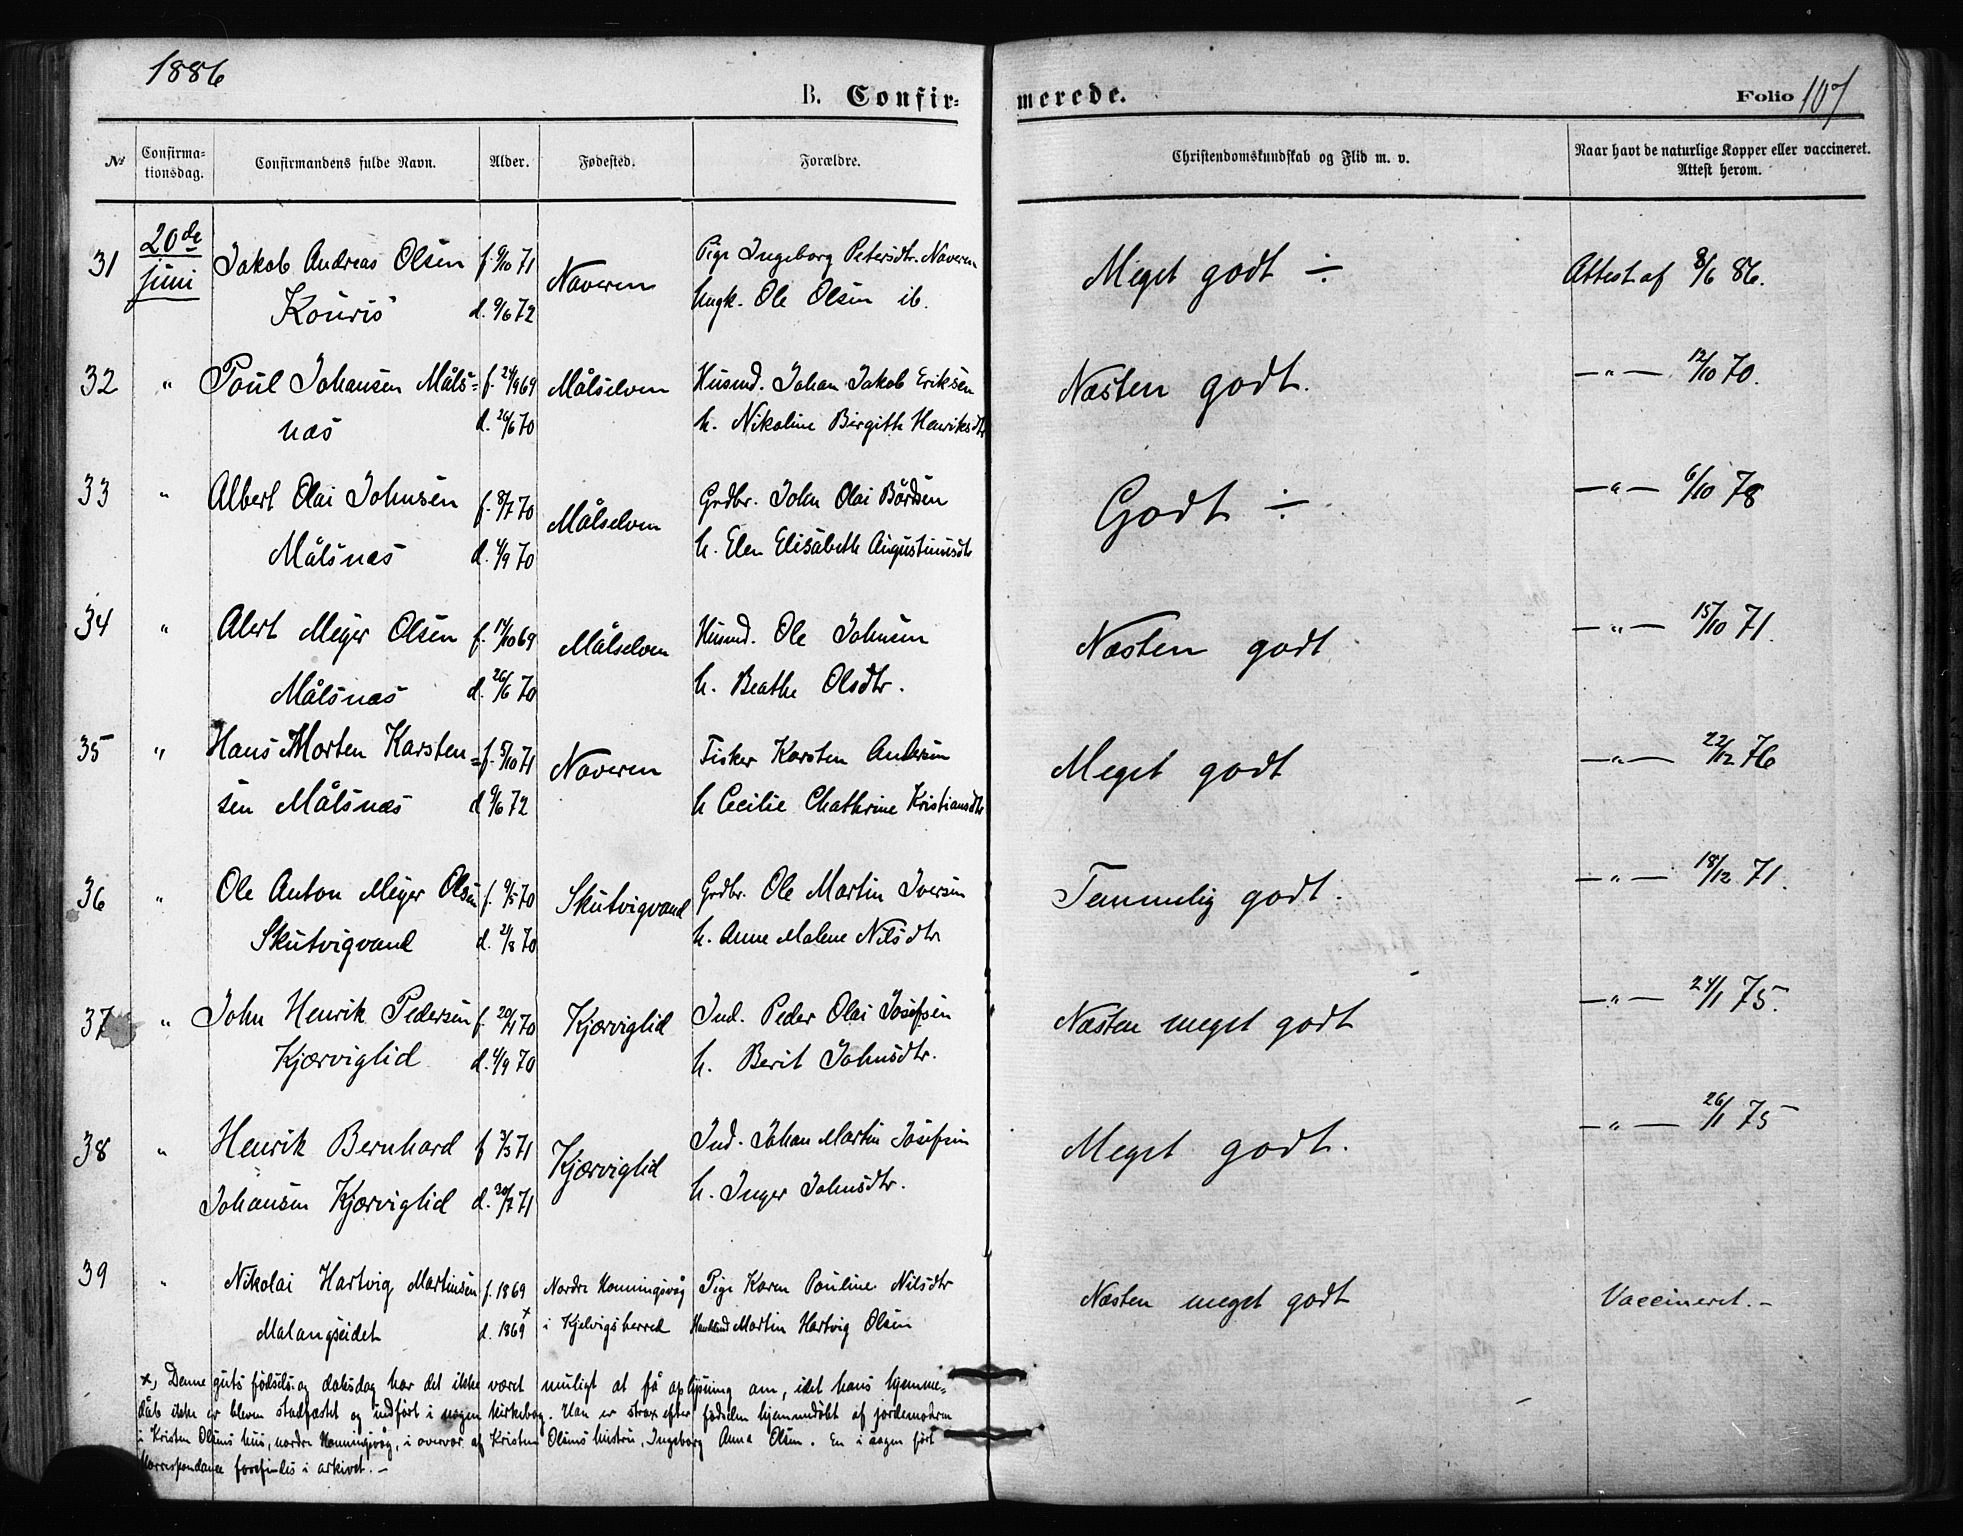 1886
B. Confir= merede. Folio 107
No Confirma-tionsdag. Confirmandens fulde Navn. Alder. Fødested. Forældre. Christendomskundskab og Flid m. v. Naar havt de naturlige Kopper eller vaccineret. Attest herom.
31 20de juni Jakob Andreas Olsen f. 9/10 71 Naveren Pige Ingeborg Petersdtr. Naveren Meget godt ÷ Attest af 8/6 86.
Kouris d. 9/6 72 Ungk. Ole Olsen ib.
32 " Poul Johansen Måls= f. 24/9 69 Målselven Husmd. Johan Jakob Eriksen Næsten godt. —"— 12/10 70.
næs d. 26/6 70 h. Nikoline Birgith Henriksdtr
33 " Albert Olai Johnsen f. 8/7 70 Målselven Grdbr. John Olai Bårdsen Godt ÷ —"— 6/10 78
Målsnæs d. 4/9 70 h. Elen Elisabeth Augustinusdtr
34 " Alert Meyer Olsen f. 14/10 69 Målselven Husmd. Ole Johnsen Næsten godt —"— 15/10 71.
Målsnæs d. 26/6 70 h. Beathe Olsdtr.
35 " Hans Morten Karsten= f. 5/10 71 Naveren Fisker Karsten Andersen Meget godt —"— 22/12 76
sen Målsnæs d 9/6 72 h Cecilie Chathrine Kristiansdtr
36 " Ole Anton Meyer Olsen f. 9/5 70 Skutvigvand Grdbr. Ole Martin Iversen Temmelig godt. —"— 18/12 71.
Skutvigvand d. 2/8 70 h. Anne Malene Nilsdtr
37 " John Henrik Pedersen f. 20/1 70 Kjærviglid Ind. Peder Olai Josefsen Næsten meget godt —"— 24/1 75.
Kjærviglid d. 4/9 70 h. Berit Johnsdtr.
38 " Henrik Bernhard f 3/3 71 Kjærviglid Ind. Johan Martin Josefsen Meget godt. —"— 26/1 75
Johansen Kjærviglid d. 30/7 71 h. Inger Johnsdtr.
39 " Nikolai Hartvig Martinsen f. 1869 Nordre Honningsvåg Pige Karen Pauline Nilsdtr Næsten meget godt Vaccineret. -
Malangseidet d. 1869 x i Kjelvigs herred Martin Hartvig Olsen
x, Denne guts fødsels- og dåbsdag har det ikke været muligt at få oplysning om, idet hans hjemme-
dåb ikke er bleven stadfæstet og indført i nogen kirkebog. Han er strax efter fødselen hjemmedøbt af jordemoderen
i Kristen Olsens hus, nordre Honningsvåg, i overvær af Kristen Olsens hustru, Ingeborg Anna Olsen. En i sagen ført
korrespondance forefindes i arkivet. -